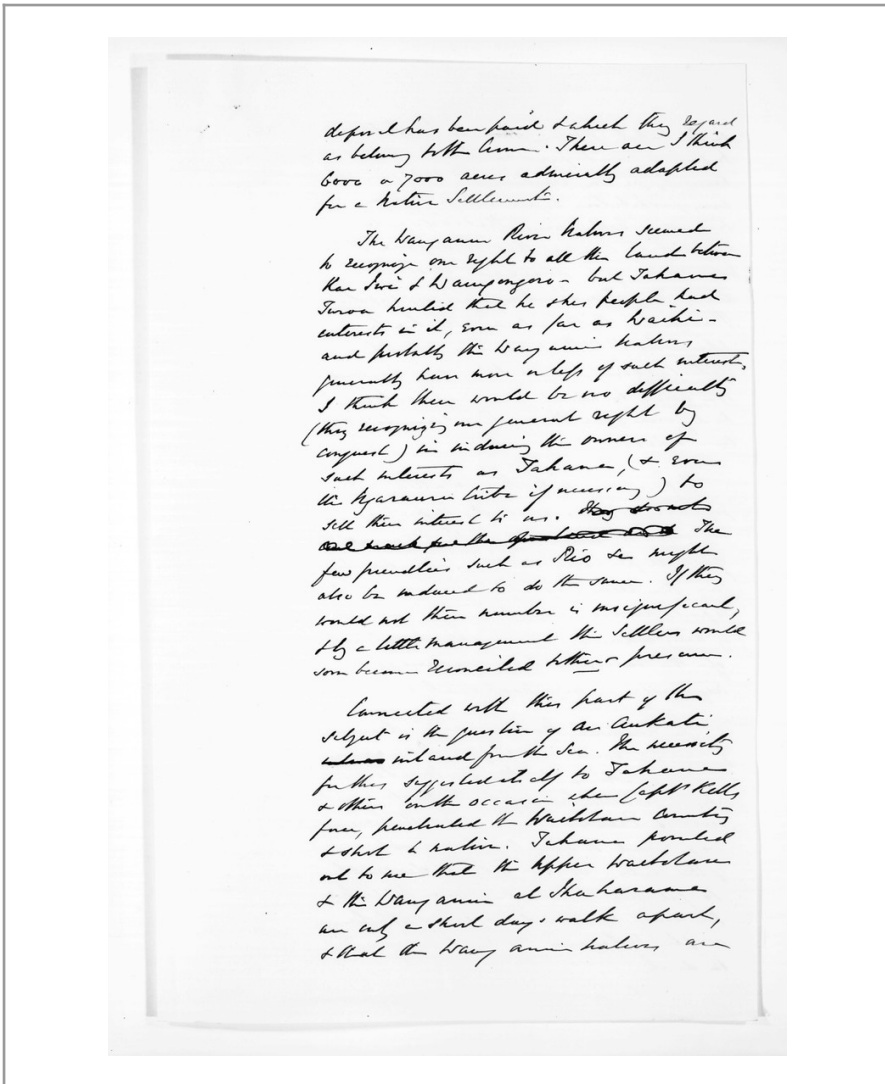 deposit has been paid & which they regard
as belong to the Crown. There are I think
6000 or 7000 acres admirably adapted
for a Native Settlement.
The Wanganui River Natives seemed
to recognize our right to all the land between
Kai Iwi & Waingongoro - but Tahana
Turoa hinted that he & his people had
interests in it, even as far as Waihi -
and probably the Wanganui Natives
generally have more or less of such interests,
I think there would be no difficulty
(they recognizing our general right by
conquest) in inducing the owners of
such interests as Tahana, (& even
the Ngarauru tribe if necessary) to
sell their interest to us. They do not
The
few friendlies such as Rio &c might
also be induced to do the same. If they
would not their number is insignificant,
& by a little management the Settlers would
soon become reconciled to their presence.
Connected with this part of the
subject is the question of an Aukati,
inland from the Sea. The necessity
for this suggested itself to Tahana
& others on the occasion when Capt Kells
force, penetrated the Waitotara Country
& shot a native. Tahana pointed
out to me that the Upper Waitotara
& the Wanganui at
are only a short day's walk apart,
& that the Wanganui natives are